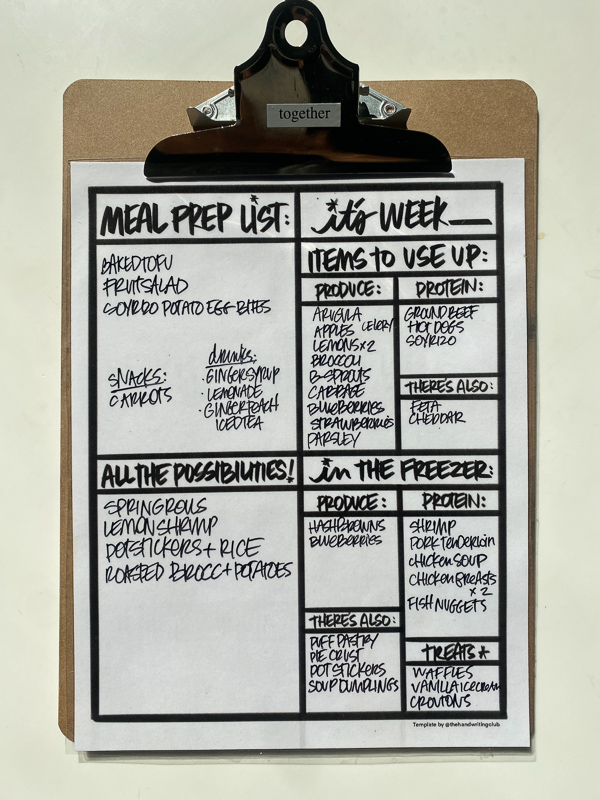 together
MEAL PREP LIST:
BAKED TOFU
FRUIT SALAD
SOYRIZO POTATO EGG-BITES
SNACKS:
CARROTS
drinks:
· GINGER SYRUP
· LEMONADE
· GINGER PEACH
ICED TEA
it's WEEK
ITEMS TO USE UP:
PRODUCE:
ARUGULA
APPLES CELERY
LEMONS x 2
BROCCOLI
B-SPROUTS
CABBAGE
BLUEBERRIES
STRAWBERRIES
PARSLEY
PROTEIN:
GROUND BEEF
HOT DOGS
SOYRIZO
THERE'S ALSO:
FETA
CHEDDAR
ALL THE POSSIBILITIES!
SPRING ROLLS
LEMON SHRIMP
POTSTICKERS + RICE
ROASTED BROCC + POTATOES
in THE FREEZER:
PRODUCE:
HASHBROWNS
BLUEBERRIES
THERE'S ALSO:
PUFF PASTRY
PIE CRUST
POT STICKERS
SOUP DUMPLINGS
PROTEIN:
SHRIMP
PORK TENDERLOIN
CHICKEN SOUP
CHICKEN BREASTS
x 2
FISH NUGGETS
TREATS *
WAFFLES
VANILLA ICE CREAM
CROUTONS
Template by @thehandwritingclub